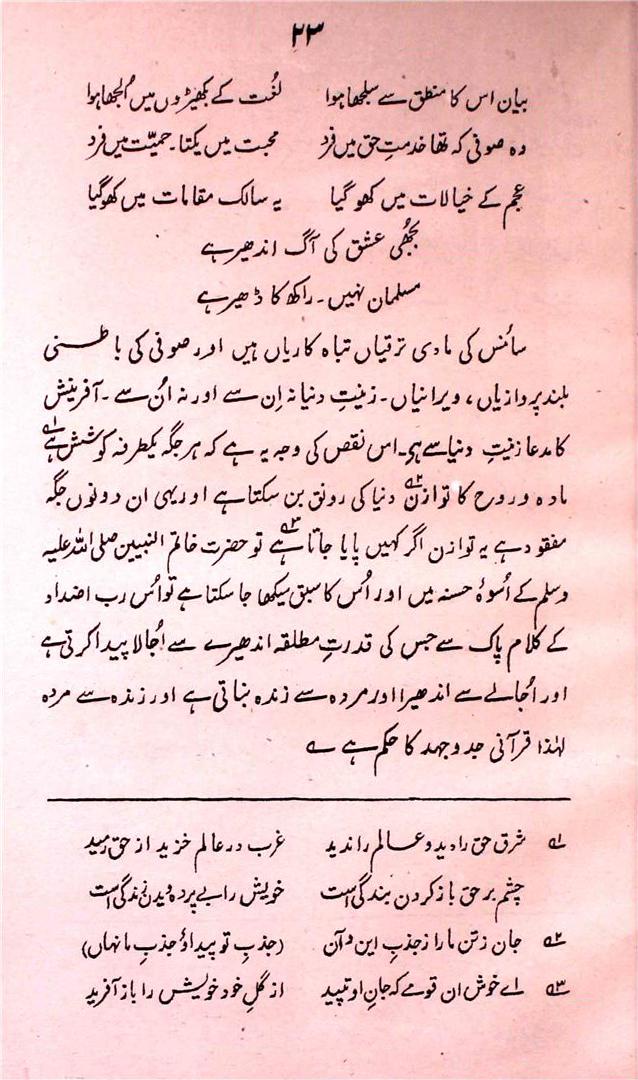 ۲۳
بیان اس کا منطق سے سلجھا ہوا لغت کے بکھیڑوں میں اُلجھا ہوا
وہ صوفی کہ تھا خدمتِ حق میں فرد محبت میں یکتا۔ حمیّت میں فرد
عجم کے خیالات میں کھو گیا یہ سالک مقامات میں کھو گیا
بُجھی عشق کی آگ اندھیر ہے
مسلمان نہیں۔ راکھ کا ڈھیر ہے
سائنس کی مادی ترقیاں تباہ کاریاں ہیں اور صوفی کی باطنی
بلند پروازیاں، ویرانیاں۔ زینتِ دنیا نہ اِن سے اور نہ اُن سے۔ آفرینش
کا مدعا زینتِ دنیا سے ہی۔ اس نقص کی وجہ یہ ہے کہ ہر جگہ یکطرفہ کوشش ہے ؎۱
مادہ و روح کا توازن ؎۲ دنیا کی رونق بن سکتا ہے اور یہی ان دونوں جگہ
مفقود ہے یہ توازن اگر کہیں پایا جاتا ہے ؎۳ تو حضرت خاتم النبیین صلی اللہ علیہ
وسلم کے اُسوۂ حسنہ میں اور اُس کا سبق سیکھا جا سکتا ہے تو اُس رب اضداد
کے کلام پاک سے جس کی قدرتِ مطلقہ اندھیرے سے اُجالا پیدا کرتی ہے
اور اُجالے سے اندھیرا اور مردہ سے زندہ بناتی ہے اور زندہ سے مردہ
لہٰذا قرآنی جد و جہد کا حکم ہے ؎
؎۱ شرق حق را دید و عالم را ندید غرب در عالم خزید از حق رمید
چشم بر حق باز کردن بندگی است خویش را بے پردہ دیدن زندگی است
؎۲ جان ز تن ما را ز جذبِ این و آن (جذبِ تو پیدا و جذبِ ما نہاں)
؎۳ اے خوش ان قومے کہ جانِ او تپید از گلِ خود خویش را باز آفرید